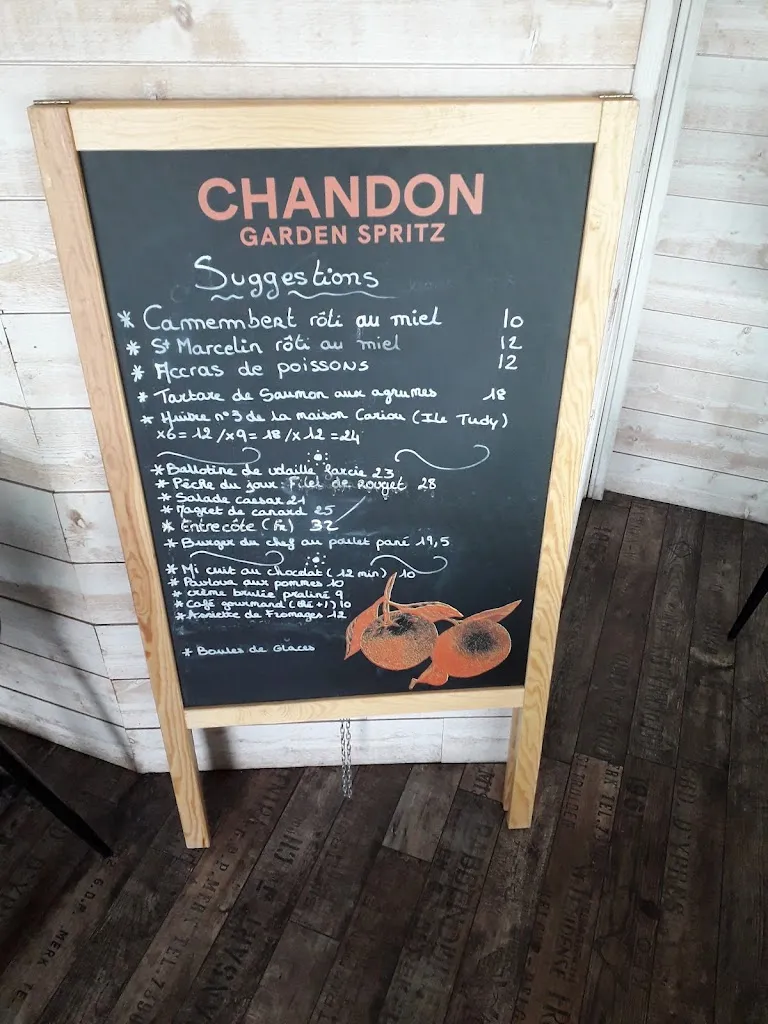 CHANDON
GARDEN SPRITZ
Suggestions
* Camembert rôti au miel 10
* St Marcelin rôti au miel 12
* Accras de poissons 12
* Tartare de Saumon aux agrumes 18
* Huitre n°3 de la maison Cariou (Ile Tudy)
x6 = 12 / x9 = 18 / x12 = 24
* Ballotine de volaille farcie 23
* Pêche du jour: Filet de Rouget 28
* Salade caesar 21
* Magret de canard 25
* Entrecôte (Fr) 32
* Burger du chef au poulet pané 19,5
* Mi cuit au chocolat (12 min) 10
* Pavlova aux pommes 10
* crème brulée praliné 9
* Café gourmand (thé +1) 10
* Assiette de Fromages 12
* Boules de Glaces